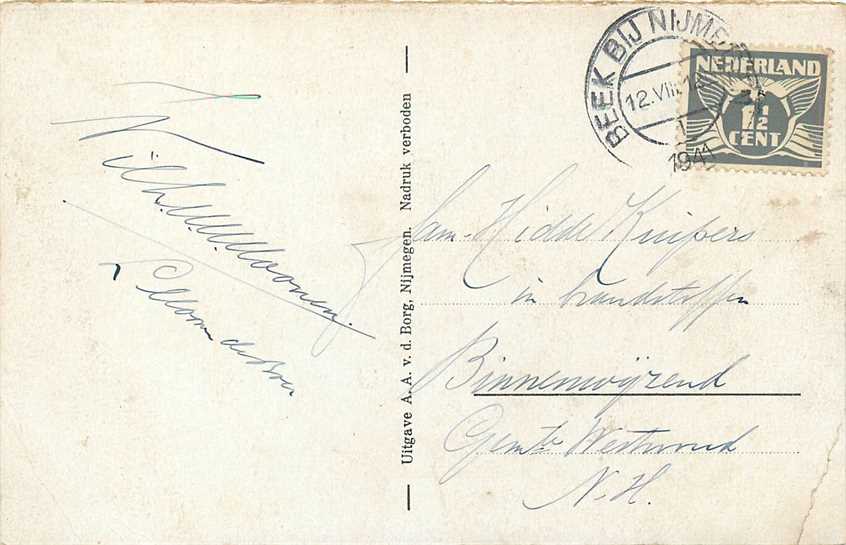 BEEK BIJ NIJME
12.VIII.
1941
NEDERLAND
1½
CENT
Uitgave A. A. v. d. Borg, Nijmegen. Nadruk verboden
Fam. Hidde Kuipers
in brandstoffen
Binnenwijzend
Gemte Westwoud
N.H.